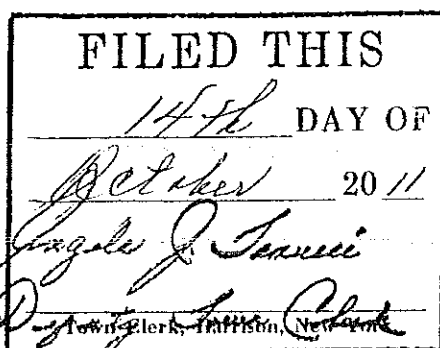 FILED THIS
14th DAY OF
October 20 11
Angela J.
Deputy Town Clerk
Town Clerk, Harrison, New York